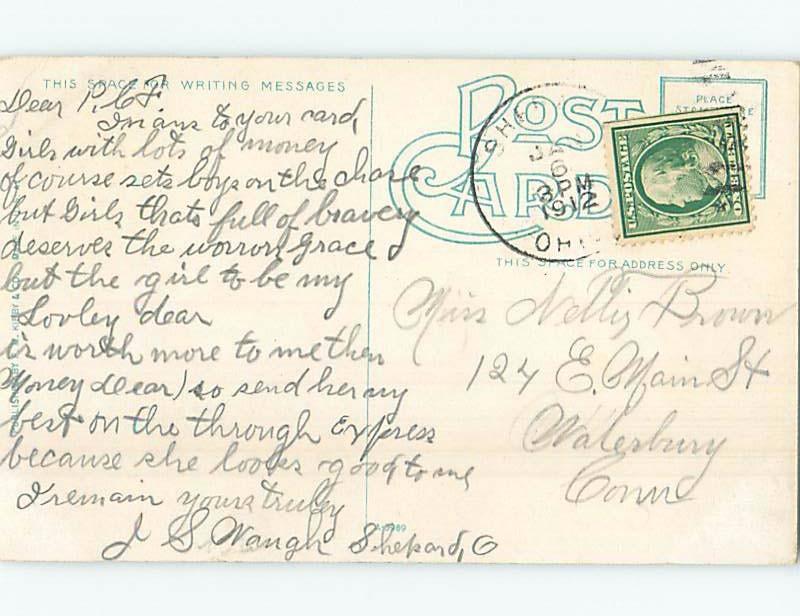 THIS SPACE FOR WRITING MESSAGES
Dear P.C.F.
In ans to your card,
Girls with lots of money
of course sets boys on the chase
but Girls thats full of bravery
deserves the worron Grace
but the girl to be my
Lovley dear
is worth more to me then
Money dear) so send her my
best on the through Express
because she lookes good to me
I remain yours truley
J S Waugh Shepard, O
POST CARD
PLACE
OHIO
6 PM
1912
U.S. POSTAGE
THIS SPACE FOR ADDRESS ONLY
Miss Nellie Brown
124 E. Main St
Waterbury
Conn